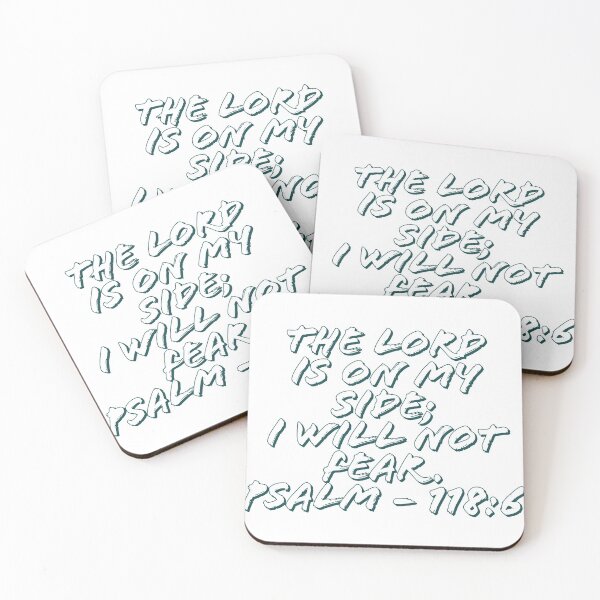 THE LORD
IS ON MY
SIDE;
THE LORD
IS ON MY
SIDE;
I WILL NOT
FEAR.
8:6
THE LORD
IS ON MY
SIDE;
I WILL NOT
FEAR
PSALM -
THE LORD
IS ON MY
SIDE;
I WILL NOT
FEAR.
PSALM - 118:6